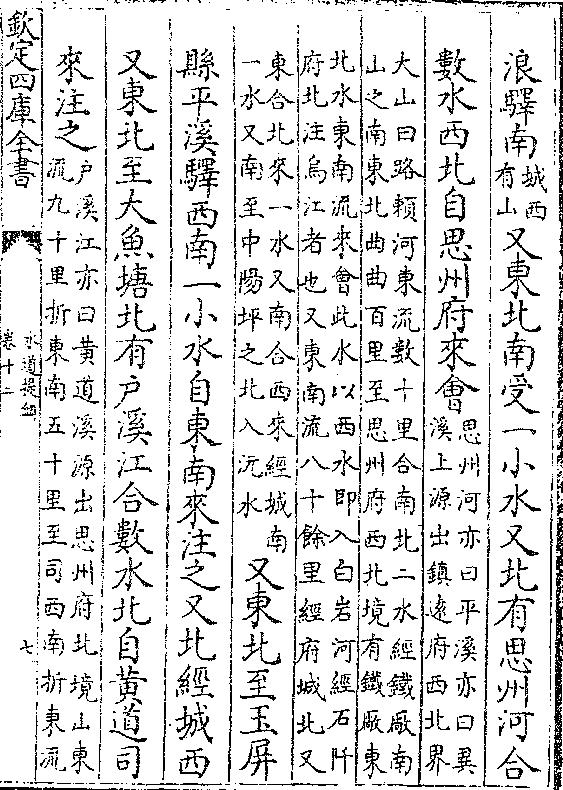 浪驛南城西有山又東北南受一小水又北有思州河合
數水西北自思州府來會思州河亦曰平溪亦曰異
溪上源出鎮遠府西北界
大山曰路頼河東流數十里合南北二水經鐵厰南
山之南東北曲曲百里至思州府西北境有鐵厰東
北水東南流來會此水以西水即入白岩河經石阡
府北注烏江者也又東南流八十餘里經府城北又
東合北來一水又南合西來經城南
一水又南至中陽坪之北入沅水又東北至玉屏
縣平溪驛西南一小水自東南來注之又北經城西
又東北至大魚塘北有户溪江合數水北自黄道司
來注之户溪江亦曰黄道溪源出思州府北境山東
流九十里折東南五十里至司西南折東流
欽定四庫全書
水道提綱
卷十二
七